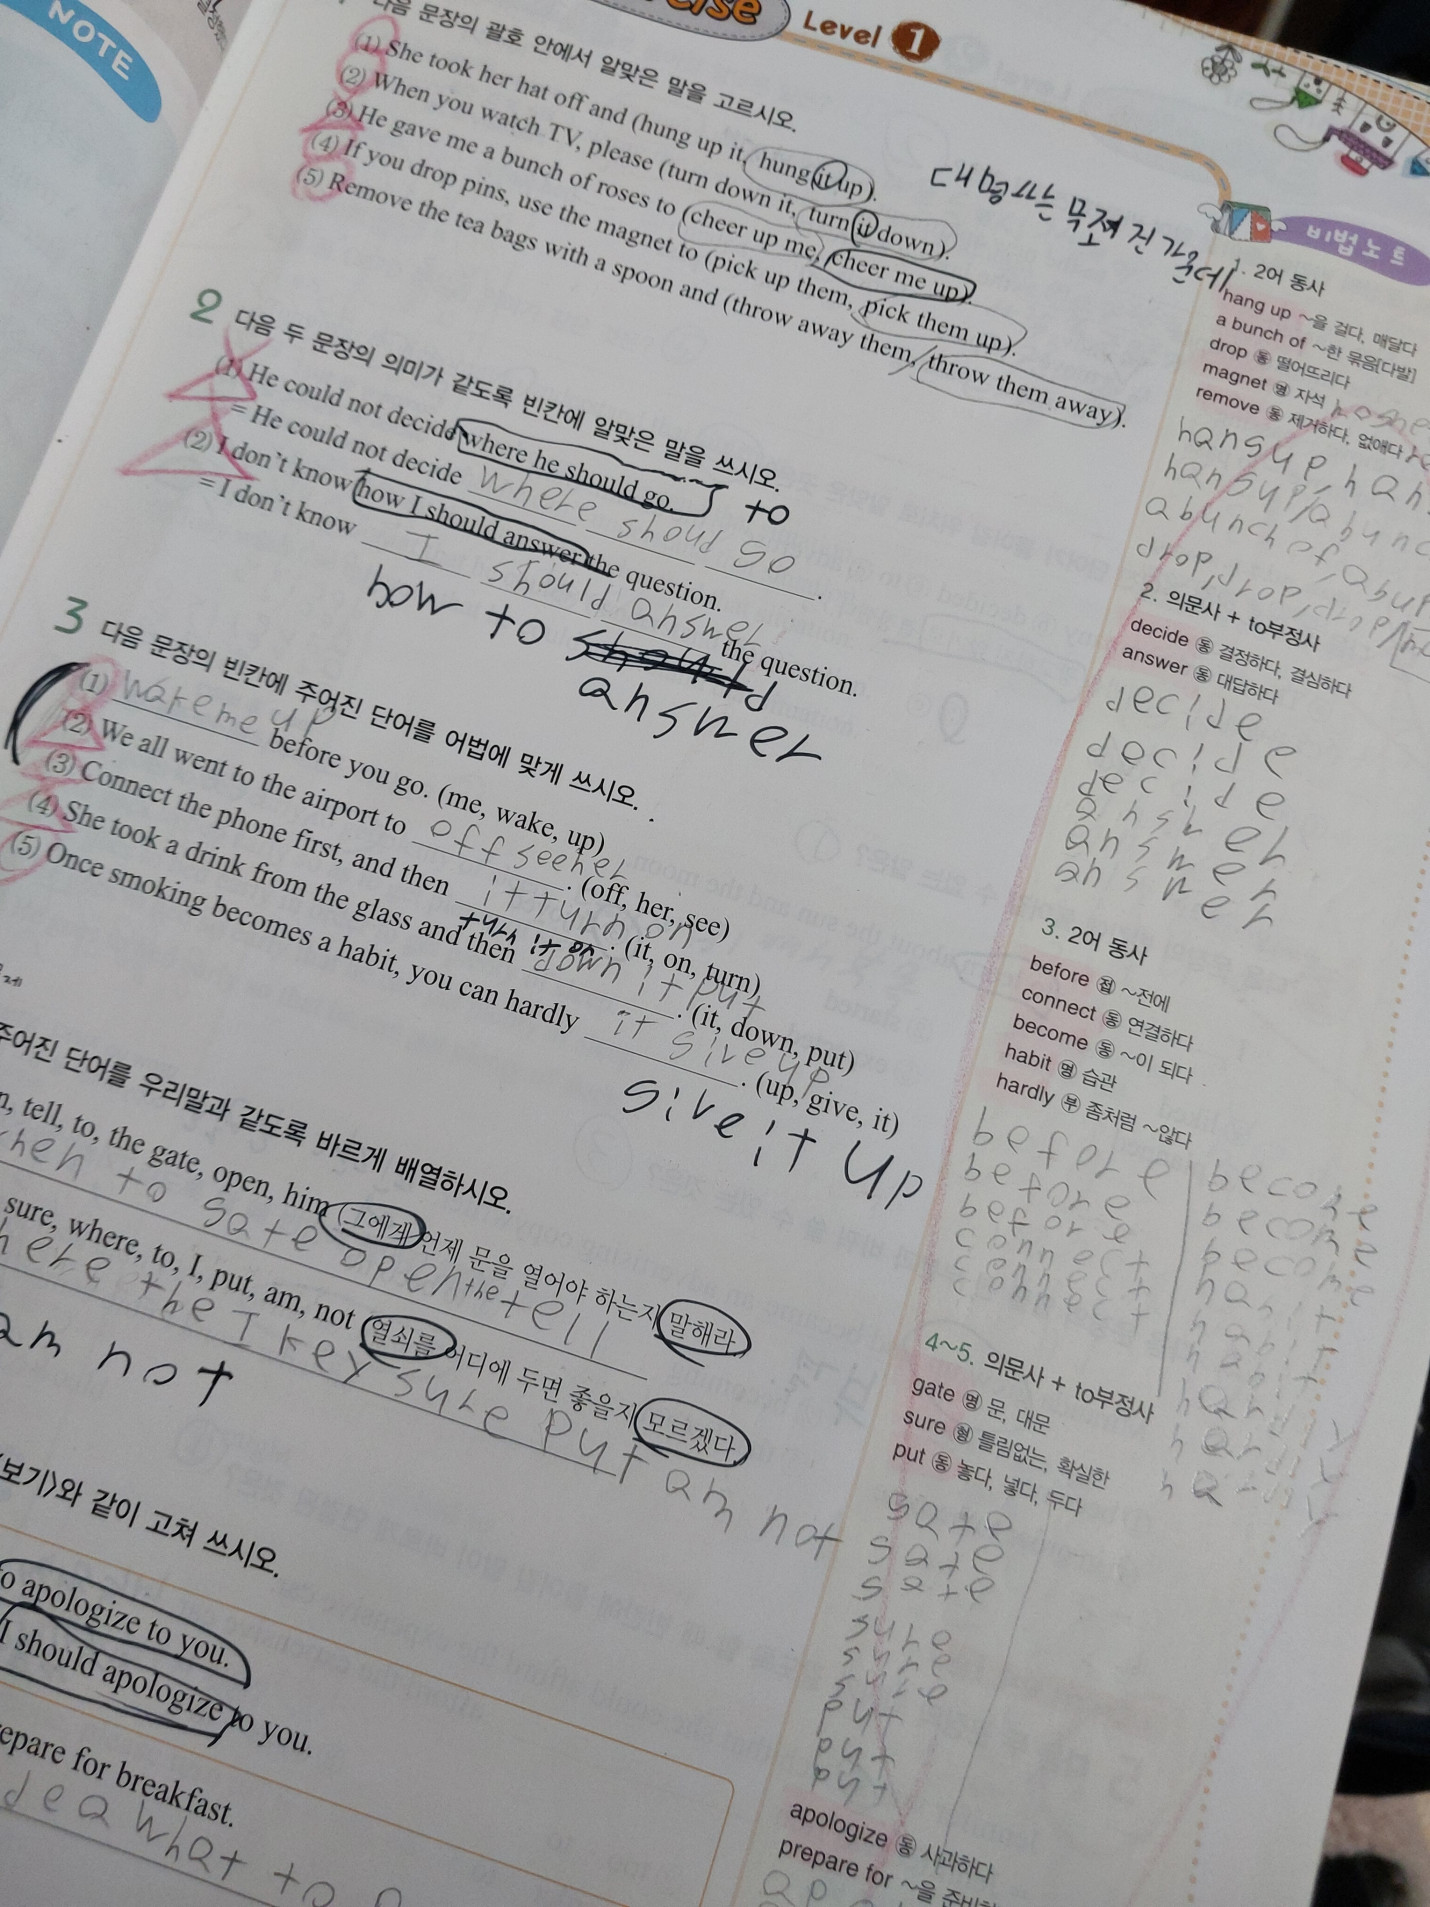 NOTE
Level 1
다음 문장의 괄호 안에서 알맞은 말을 고르시오.
(1) She took her hat off and (hung up it, hung it up).
(2) When you watch TV, please (turn down it, turn it down).
(3) He gave me a bunch of roses to (cheer up me, cheer me up).
(4) If you drop pins, use the magnet to (pick up them, pick them up).
(5) Remove the tea bags with a spoon and (throw away them, throw them away).
대명사는 무조건 가운데
2 다음 두 문장의 의미가 같도록 빈칸에 알맞은 말을 쓰시오.
(1) He could not decide where he should go.
= He could not decide where shoud go.
to
(2) I don't know how I should answer the question.
= I don't know I should answer the question.
how to should
answer
3 다음 문장의 빈칸에 주어진 단어를 어법에 맞게 쓰시오.
(1) wake me up before you go. (me, wake, up)
(2) We all went to the airport to off see her. (off, her, see)
(3) Connect the phone first, and then it turn on. (it, on, turn)
turn it on
(4) She took a drink from the glass and then down it put. (it, down, put)
(5) Once smoking becomes a habit, you can hardly it give up. (up, give, it)
give it up
주어진 단어를 우리말과 같도록 바르게 배열하시오.
, tell, to, the gate, open, him (그에게 언제 문을 열어야 하는지 말해라.)
hen to gate open the tell
sure, where, to, I, put, am, not (열쇠를 어디에 두면 좋을지 모르겠다.)
here the I key sure put am not
am not
<보기>와 같이 고쳐 쓰시오.
o apologize to you.
I should apologize to you.
epare for breakfast.
dea what to
비법노트
1. 2어 동사
hang up ~을 걸다, 매달다
a bunch of ~한 묶음[다발]
drop 동 떨어뜨리다
magnet 명 자석
remove 동 제거하다, 없애다
hang up, han
hang up, abunc
abunch of, abun
drop, drop, drop
2. 의문사 + to부정사
decide 동 결정하다, 결심하다
answer 동 대답하다
decide
decide
decide
answer
answer
answer
3. 2어 동사
before 접 ~전에
connect 동 연결하다
become 동 ~이 되다
habit 명 습관
hardly 부 좀처럼 ~않다
before become
before become
before become
connect habit
connect habit
habit
hardly
hardly
hardly
4~5. 의문사 + to부정사
gate 명 문, 대문
sure 형 틀림없는, 확실한
put 동 놓다, 넣다, 두다
gate
gate
gate
sure
sure
sure
put
put
put
apologize 동 사과하다
prepare for ~을 준비